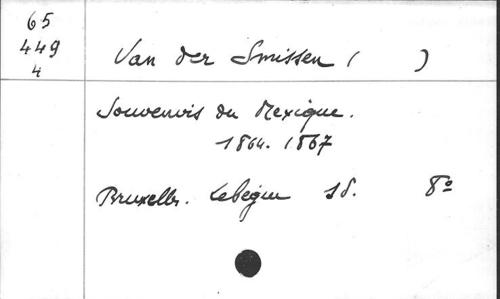 65
449
4
Van der Smissen ( )
Souvenirs du Mexique.
1864. 1867
Bruxelles. Lebègue sd. 8º